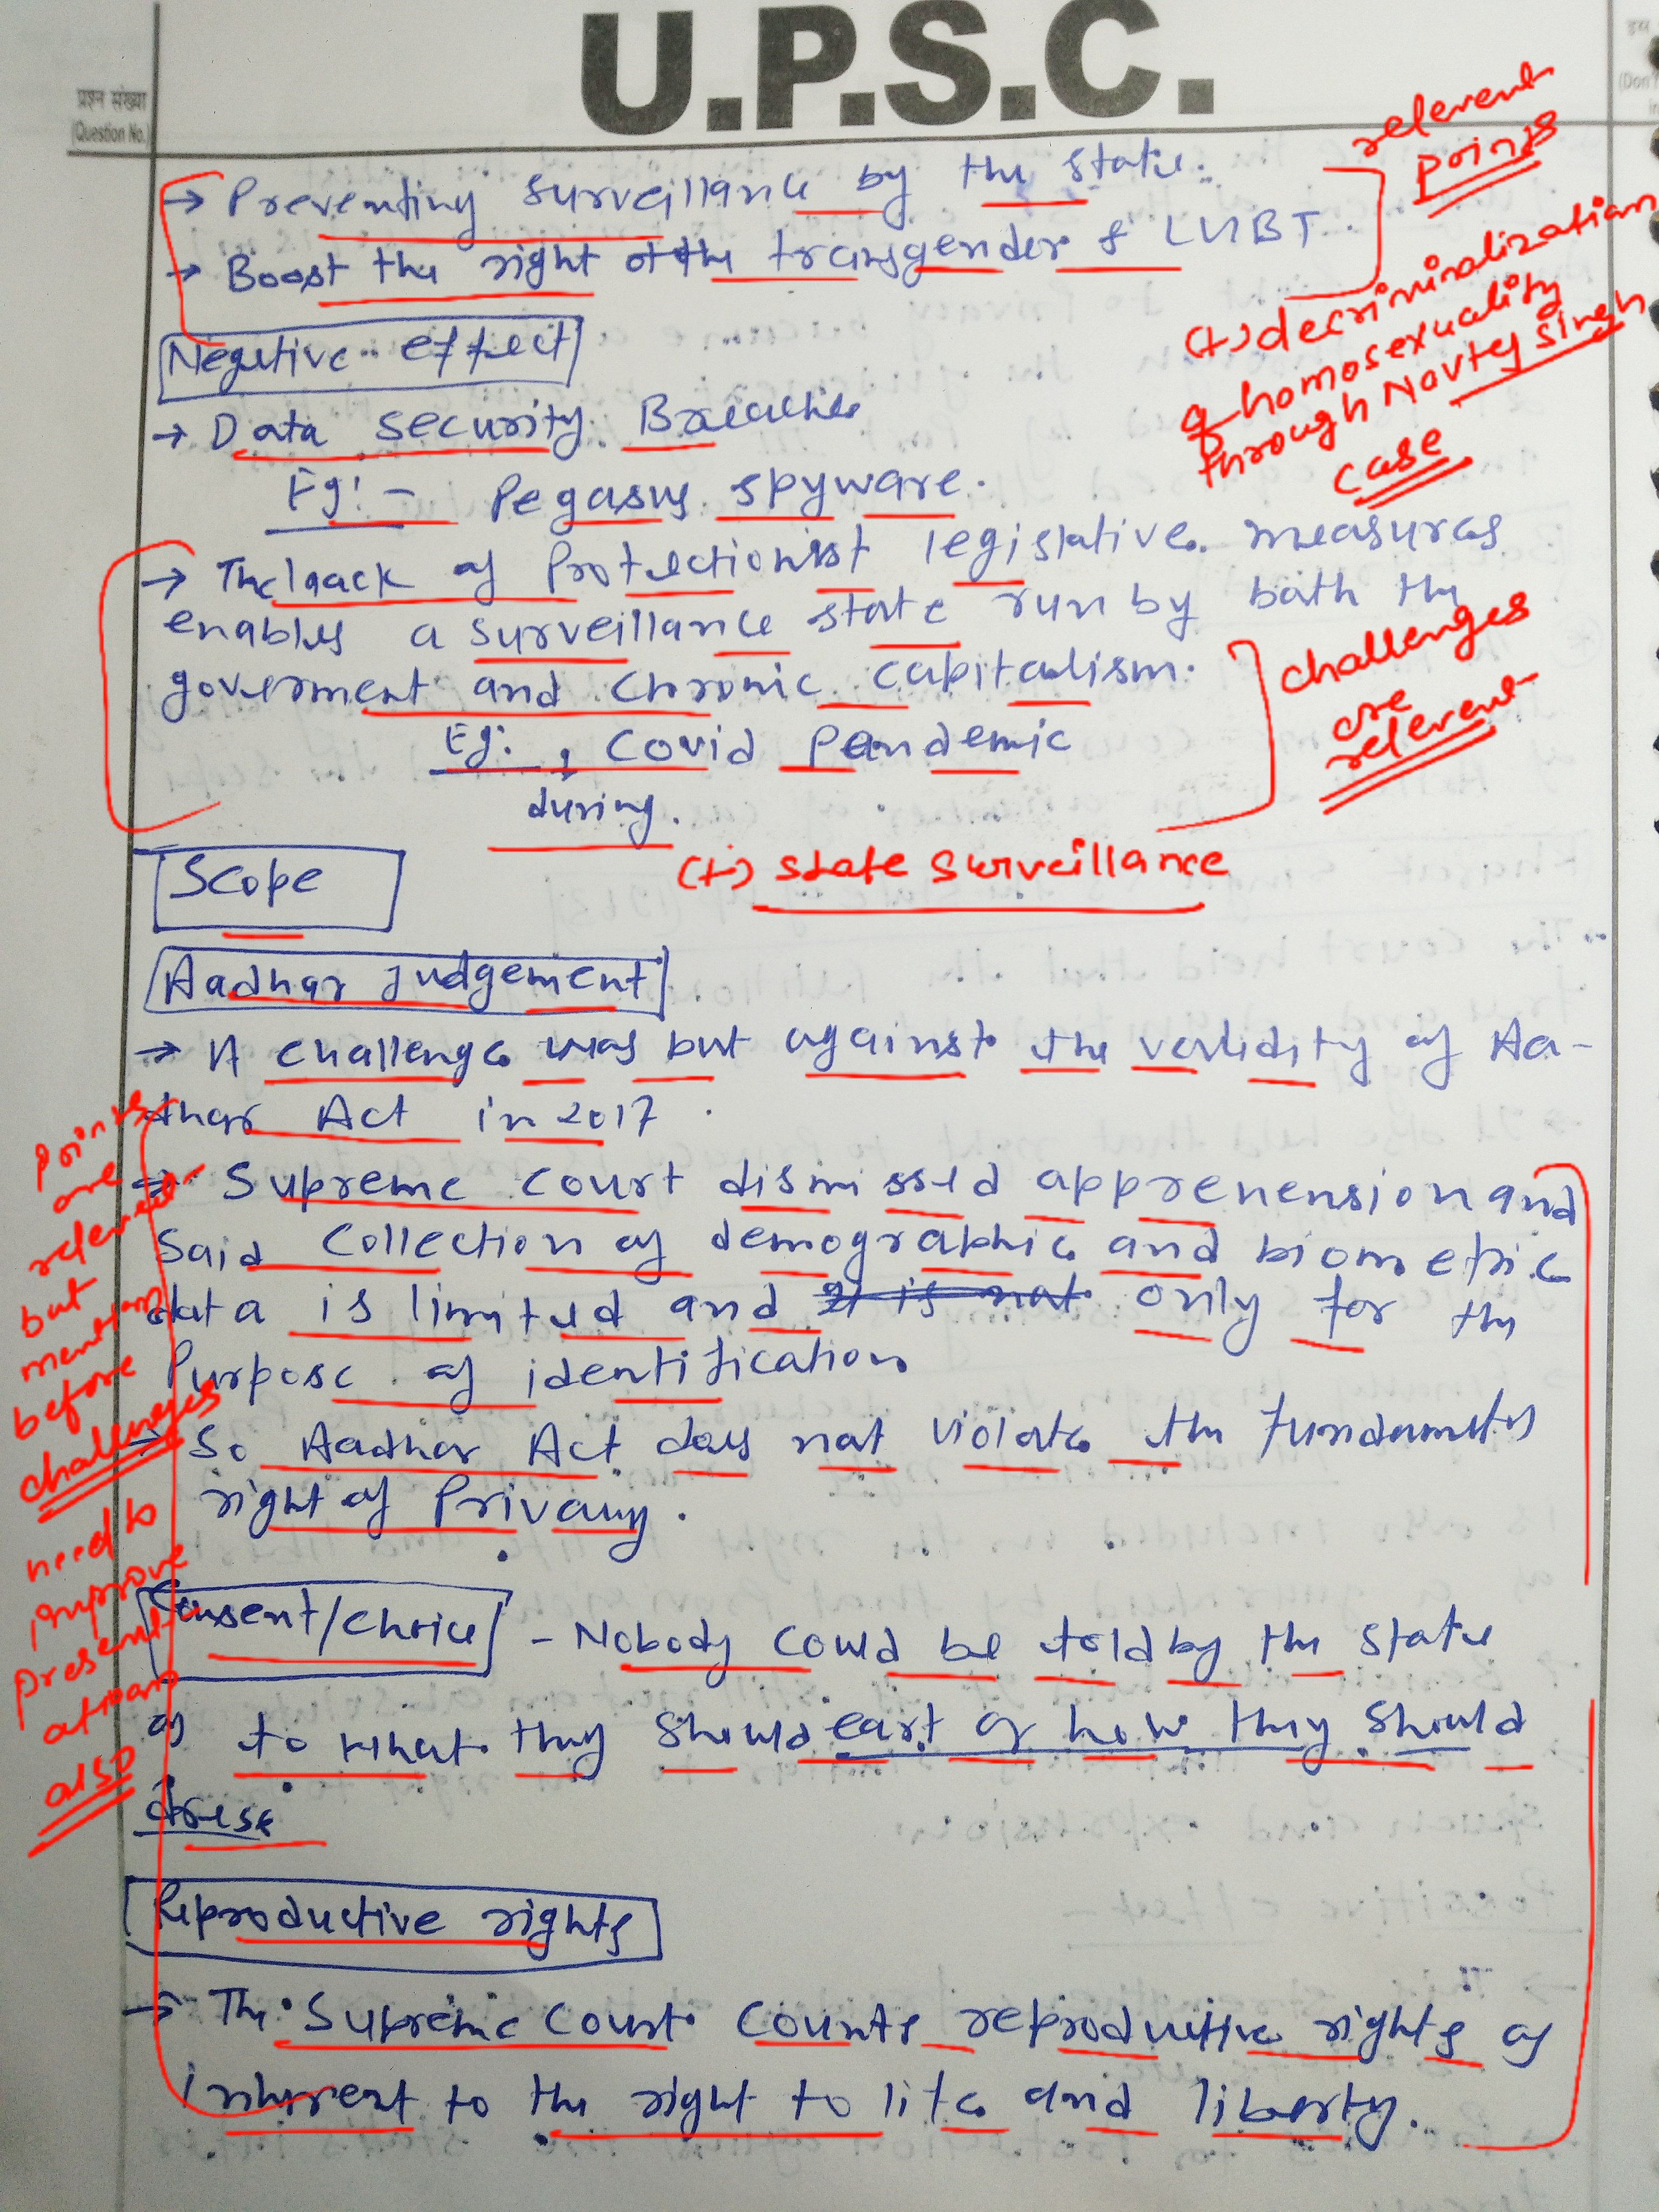 U.P.S.C.
प्रश्न संख्या
(Question No.)
(Don't
→ Preventing surveillance by the state.
→ Boost the right of the transgender & LGBT.
relevent
points
(+) decriminalization
of homosexuality
through Navtej Singh
case
Negative effect
→ Data security Breaches
Eg:- Pegasus spyware.
→ The lack of Protectionist legislative measures
enables a surveillance state run by both the
goverment and Chronic capitalism.
Eg: , Covid Pandemic
during.
challenges
are
relevent
(+) state surveillance
Scope
Aadhar judgement
→ A challenge was but against the validity of Aa-
dhar Act in 2017.
→ Supreme Court dismissed apprehension and
said collection of demographic and biometric
data is limited and It is not only for the
Purpose of identification
→ So Aadhar Act does not violate the fundamental
right of Privacy.
points
are
relevent
but
mention
before
challenges
need to
improve
present
ation
also
Consent/choice - Nobody could be told by the state
as to what they should eat or how they should
dress
Reproductive rights
→ The Supreme Court Counts reproductive rights as
inherent to the right to life and liberty.